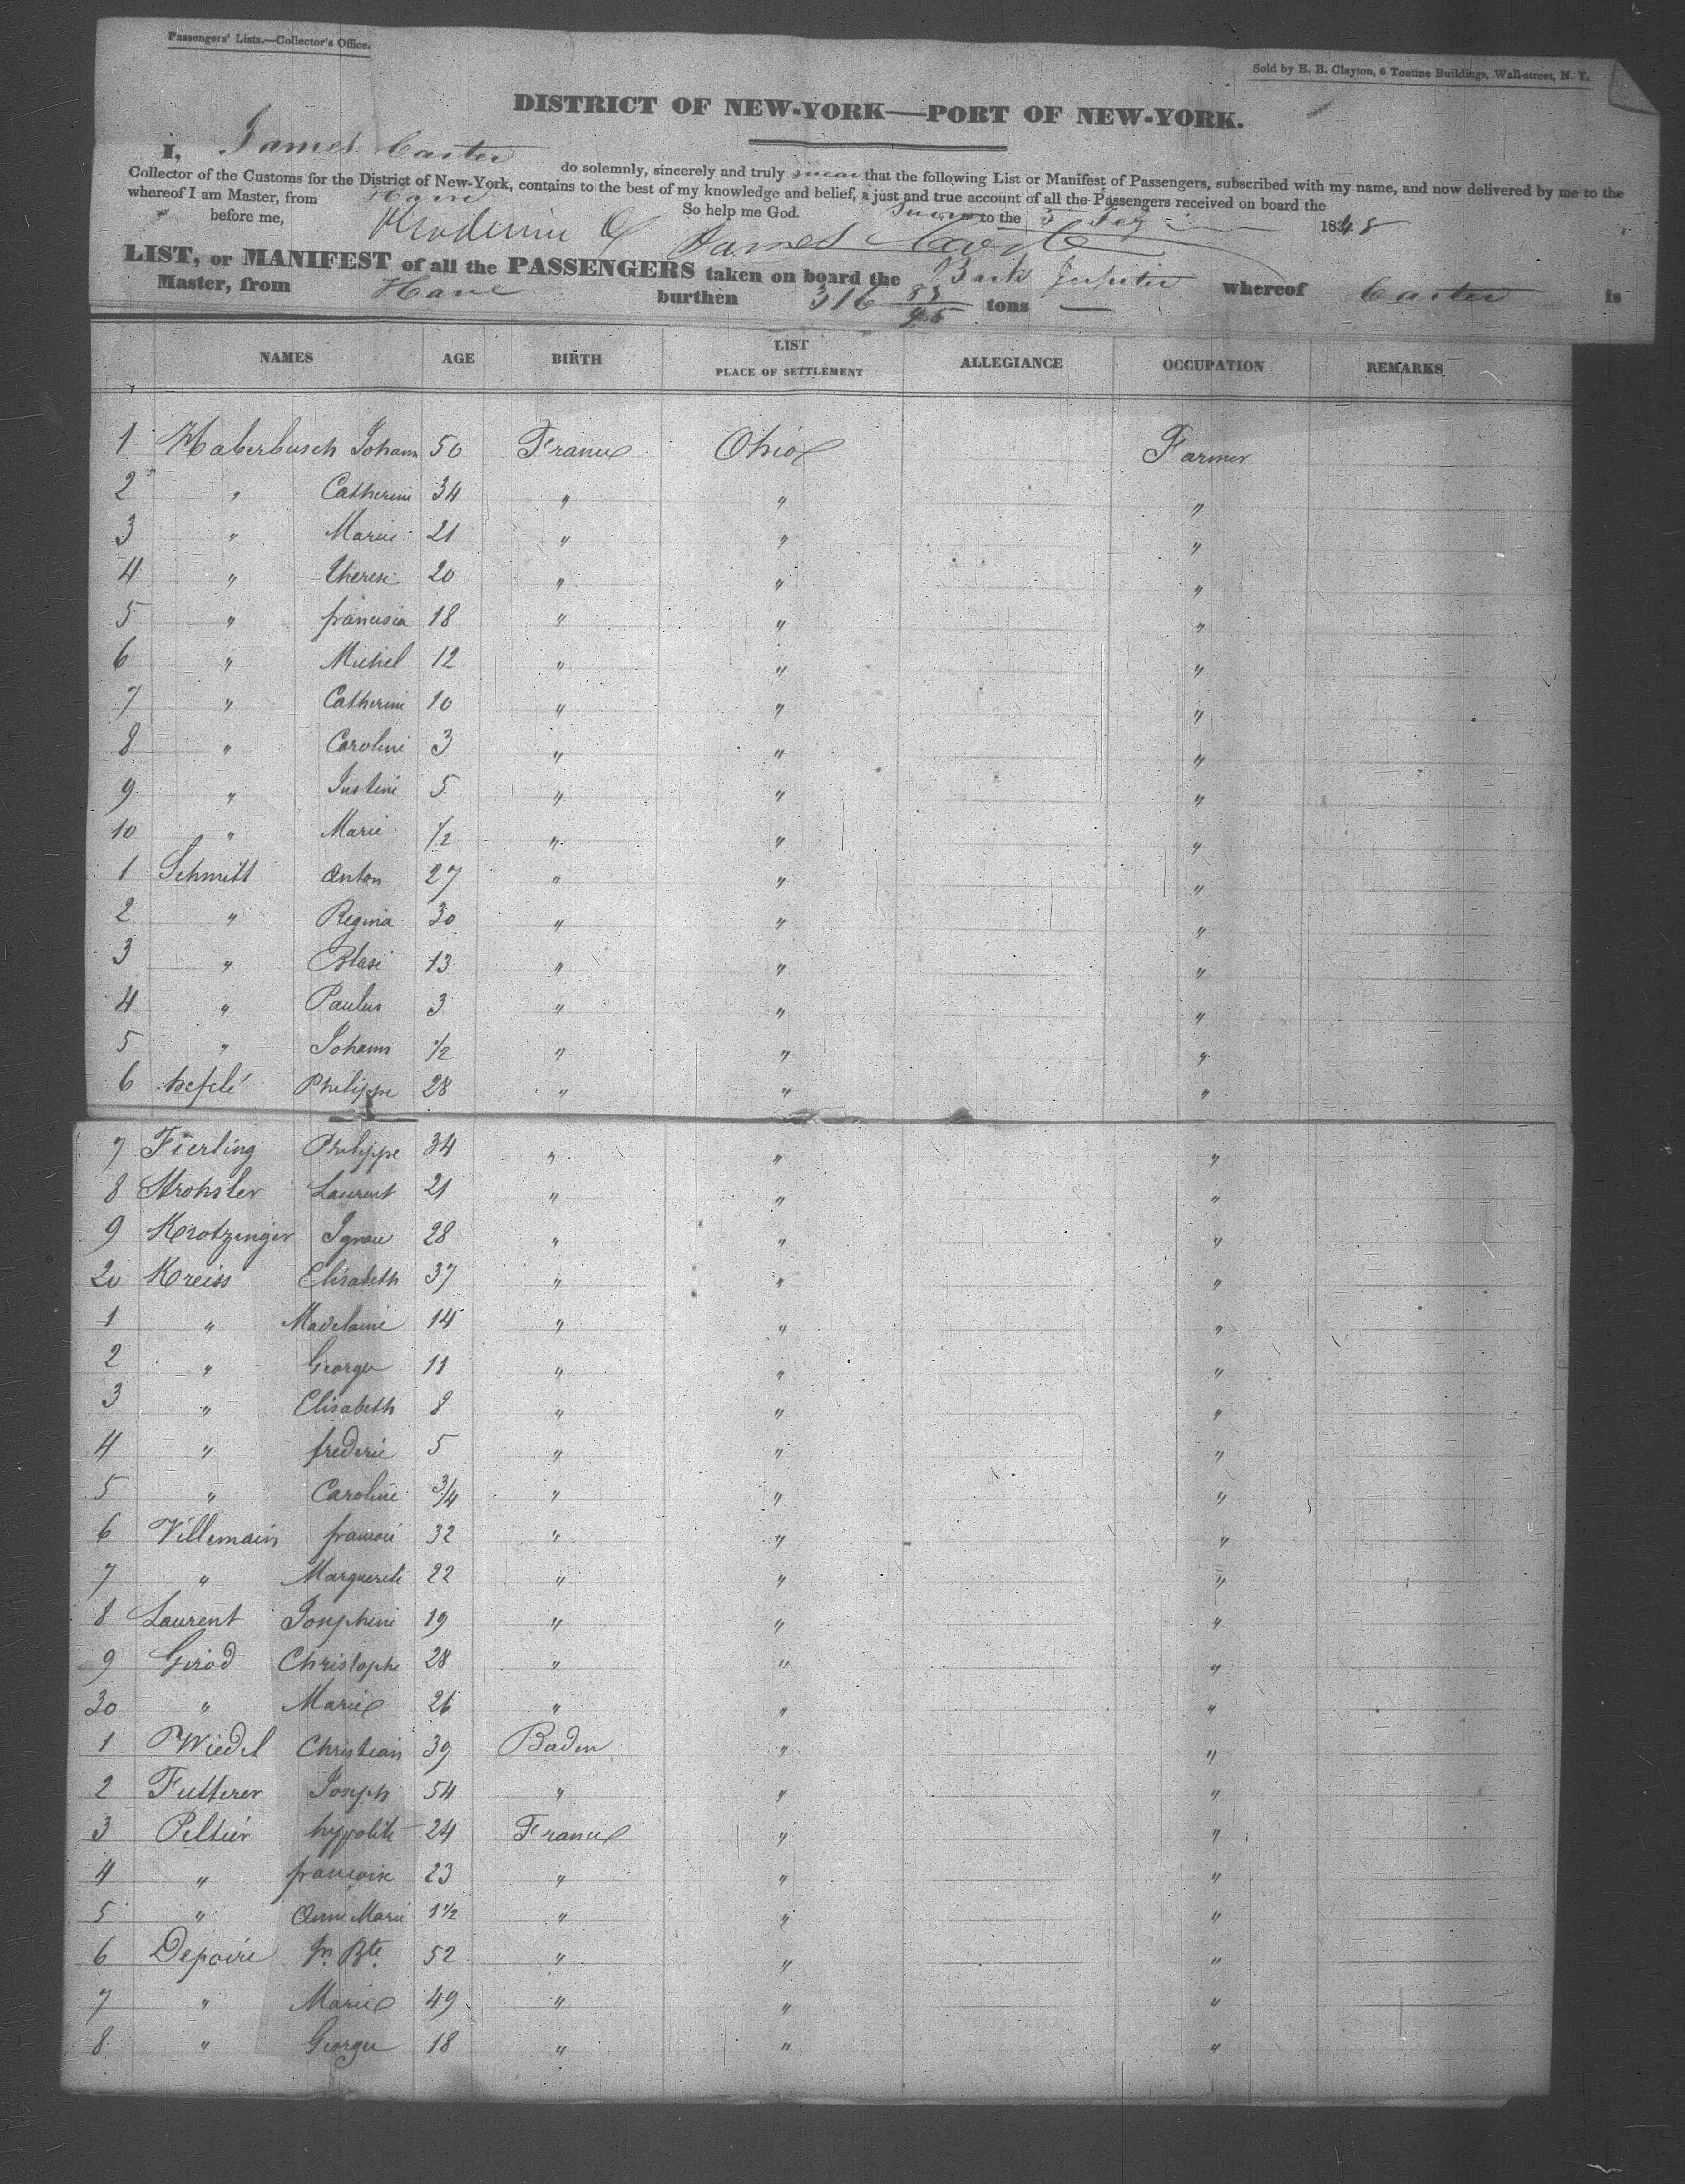 Passengers' Lists.—Collector's Office.
Sold by E. B. Clayton, 6 Tontine Buildings, Wall-street, N. Y.
DISTRICT OF NEW-YORK—PORT OF NEW-YORK.
I, James Carter do solemnly, sincerely and truly swear that the following List or Manifest of Passengers, subscribed with my name, and now delivered by me to the
Collector of the Customs for the District of New-York, contains to the best of my knowledge and belief, a just and true account of all the Passengers received on board the
whereof I am Master, from Havre So help me God. Sworn to the 5 1848
before me, James Carter
LIST, or MANIFEST of all the PASSENGERS taken on board the Bark Jupiter whereof Carter is
Master, from Havre burthen 316 83/95 tons
NAMES AGE BIRTH LIST PLACE OF SETTLEMENT ALLEGIANCE OCCUPATION REMARKS
1 Haberbusch Johann 50 France Ohio Farmer
2 " Catherine 34 " " "
3 " Marie 21 " " "
4 " Therese 20 " " "
5 " francisia 18 " " "
6 " Michel 12 " " "
7 " Catherine 10 " " "
8 " Caroline 3 " " "
9 " Justine 5 " " "
10 " Marie 1/2 " " "
1 Schmitt Anton 27 " " "
2 " Regina 30 " " "
3 " Blasi 13 " " "
4 " Paulus 3 " " "
5 " Johann 1/2 " " "
6 hefelé Philippe 28 " " "
7 Fierling Philippe 34 " " "
8 Strohsler Laurent 21 " " "
9 Krotzinger Ignace 28 " " "
20 Kreiss Elisabeth 37 " " "
1 " Madelaine 14 " " "
2 " George 11 " " "
3 " Elisabeth 8 " " "
4 " frederic 5 " " "
5 " Caroline 3/4 " " "
6 Villemain francois 32 " " "
7 " Marguerite 22 " " "
8 Laurent Josephine 19 " " "
9 Girod Christophe 28 " " "
30 " Marie 26 " " "
1 Wiedel Christian 39 Baden " "
2 Futterer Joseph 54 " " "
3 Peltier hypolite 24 France " "
4 " francoise 23 " " "
5 " Anne Marie 1 1/2 " " "
6 Depoire Jn. Bte. 52 " " "
7 " Marie 49 " " "
8 " George 18 " " "